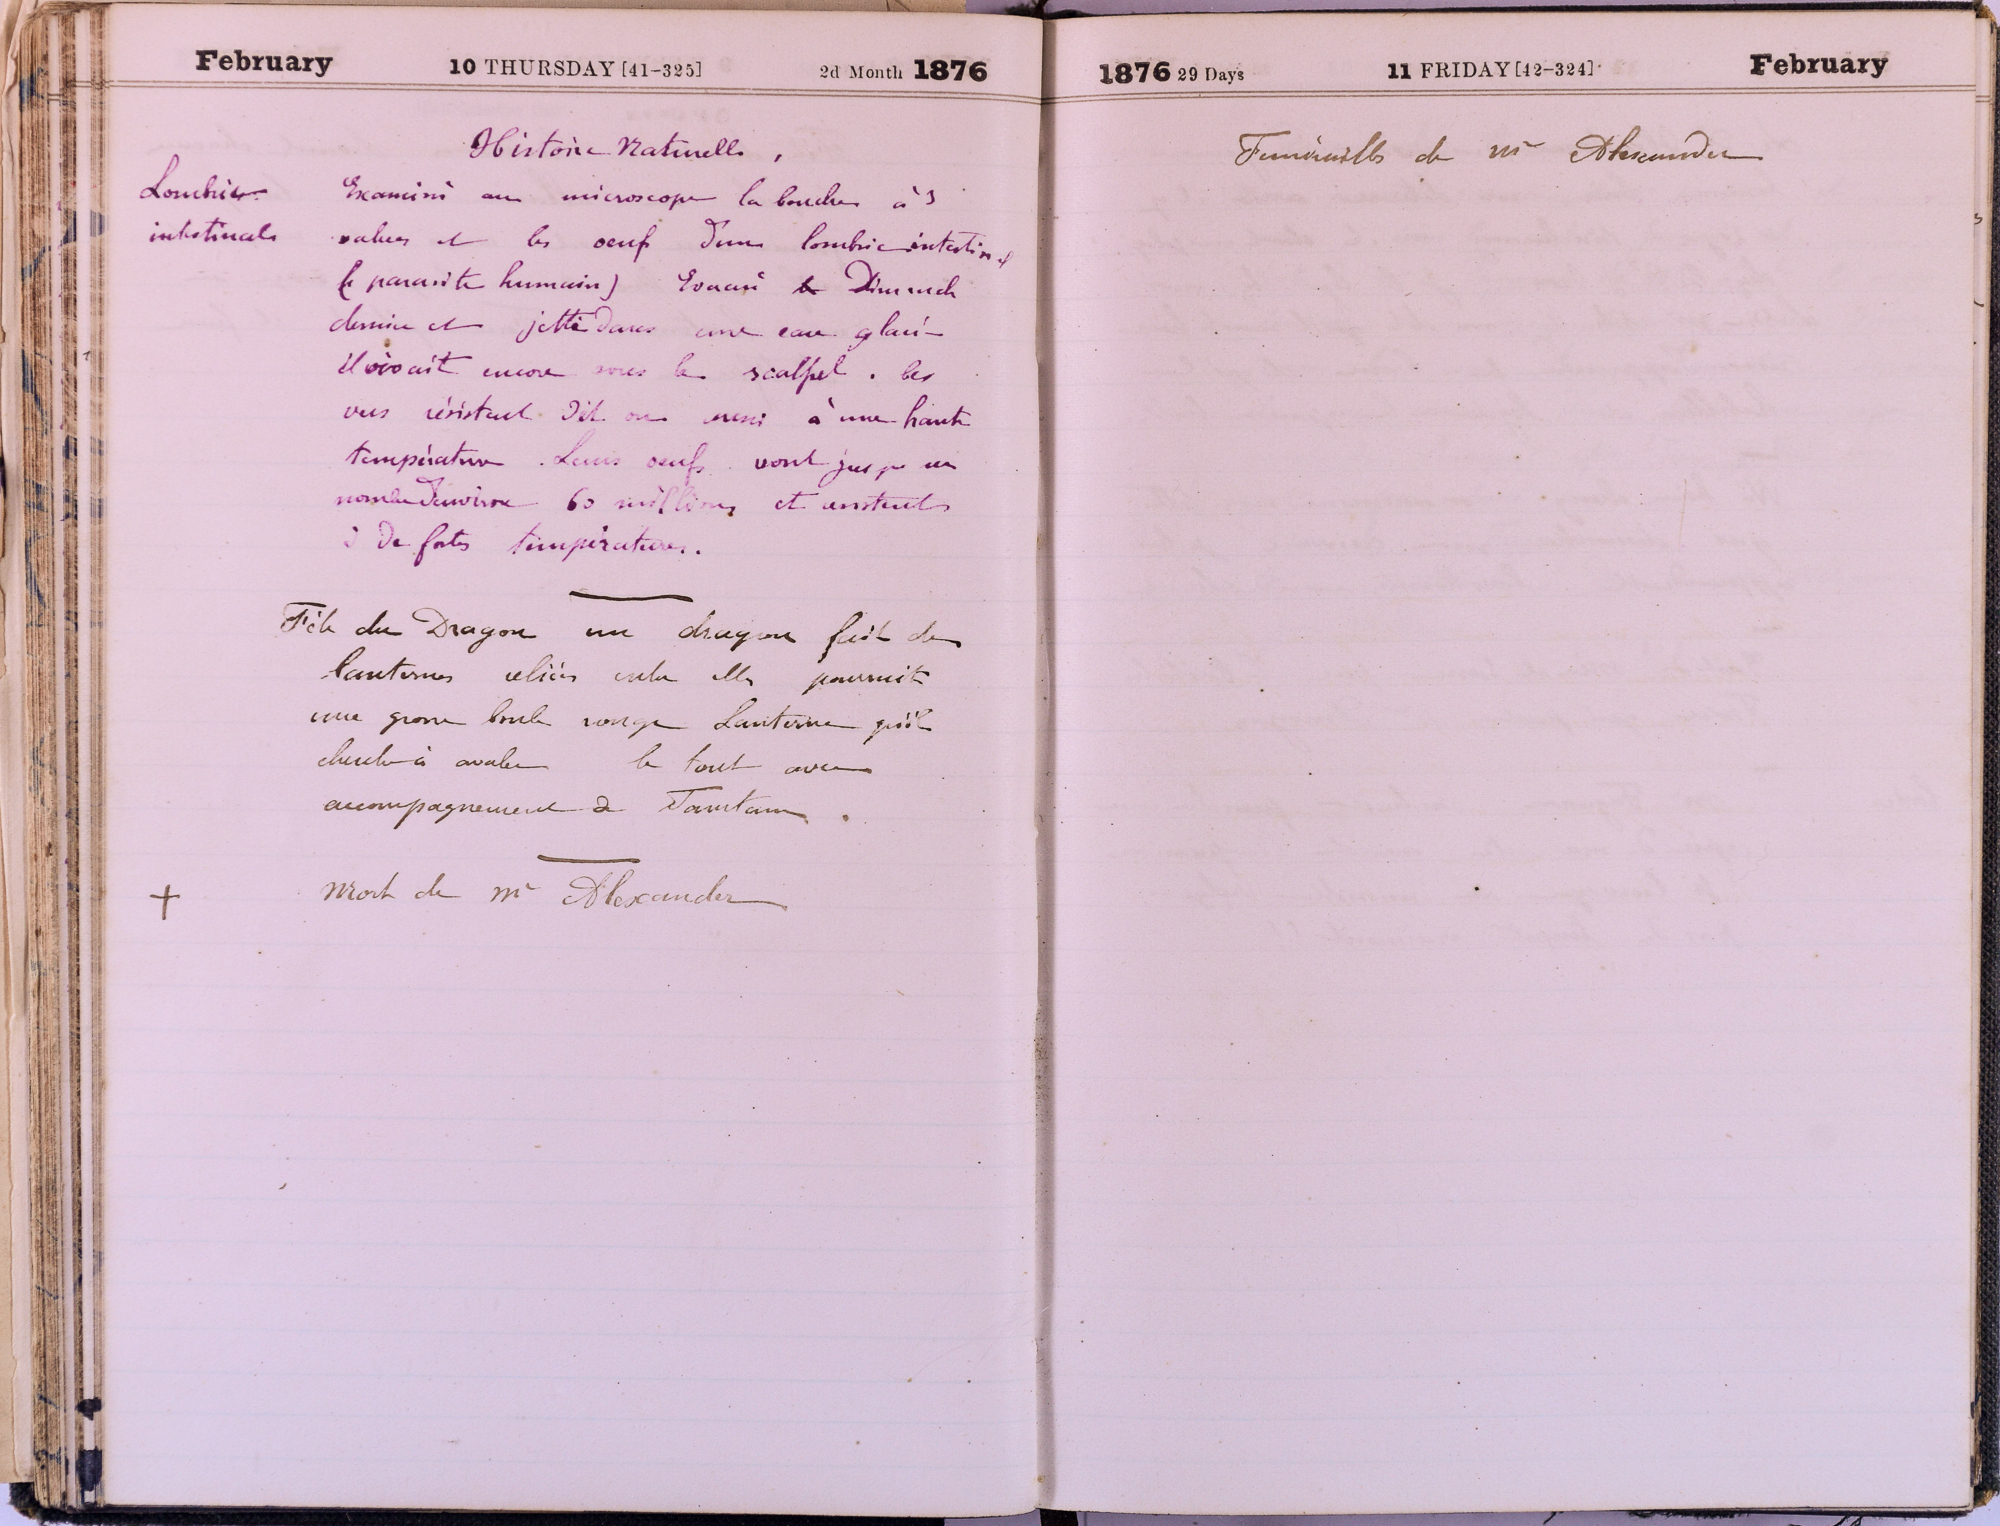 February 10 THURSDAY [41-325] 2d Month 1876
Histoire Naturelle,
Lombrics
intestinals
Examiné au microscope la bouche à 3
valves et les oeufs d'un lombric intestinal
(le parasite humain) Evacué le Dimanch
dernier et jetté dans une eau glacé
il vivait encore sous le scalpel. les
vers résistent dit on aussi à une haute
température. Leurs oeufs vont jusqu au
nombre d'environ 60 millions et resistent
à de fortes températures.
Fête du Dragon un dragon fait de
lanternes reliées entre elles poursuit
une grosse boule rouge Lanterne qu'il
cherche à avaler le tout avec
accompagnement de Tamtam.
+ Mort de Mr Alexander
1876 29 Days 11 FRIDAY [42-324] February
Funérailles de Mr Alexander